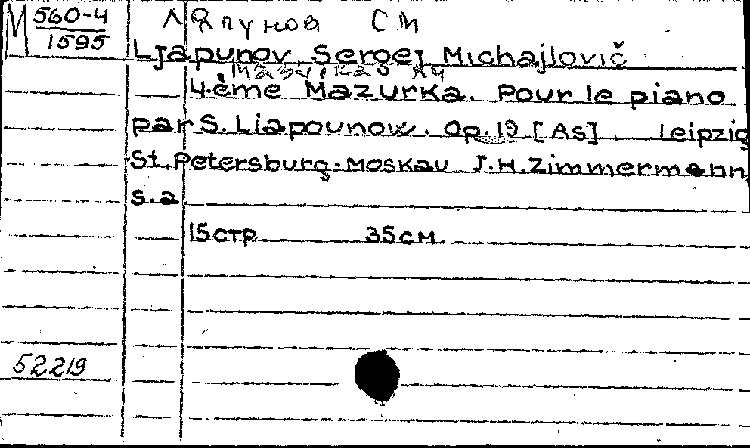 М 560-4
1595
Ляпунов СМ
Ljapunov, Sergej Michajlovič
4ème Mazurka. Pour le piano
par S. Liapounow. Op. 19 [As]. Leipzig
St. Petersburg. Moskau J. H. Zimmermann,
s. a
15 стр 35 см.
52219